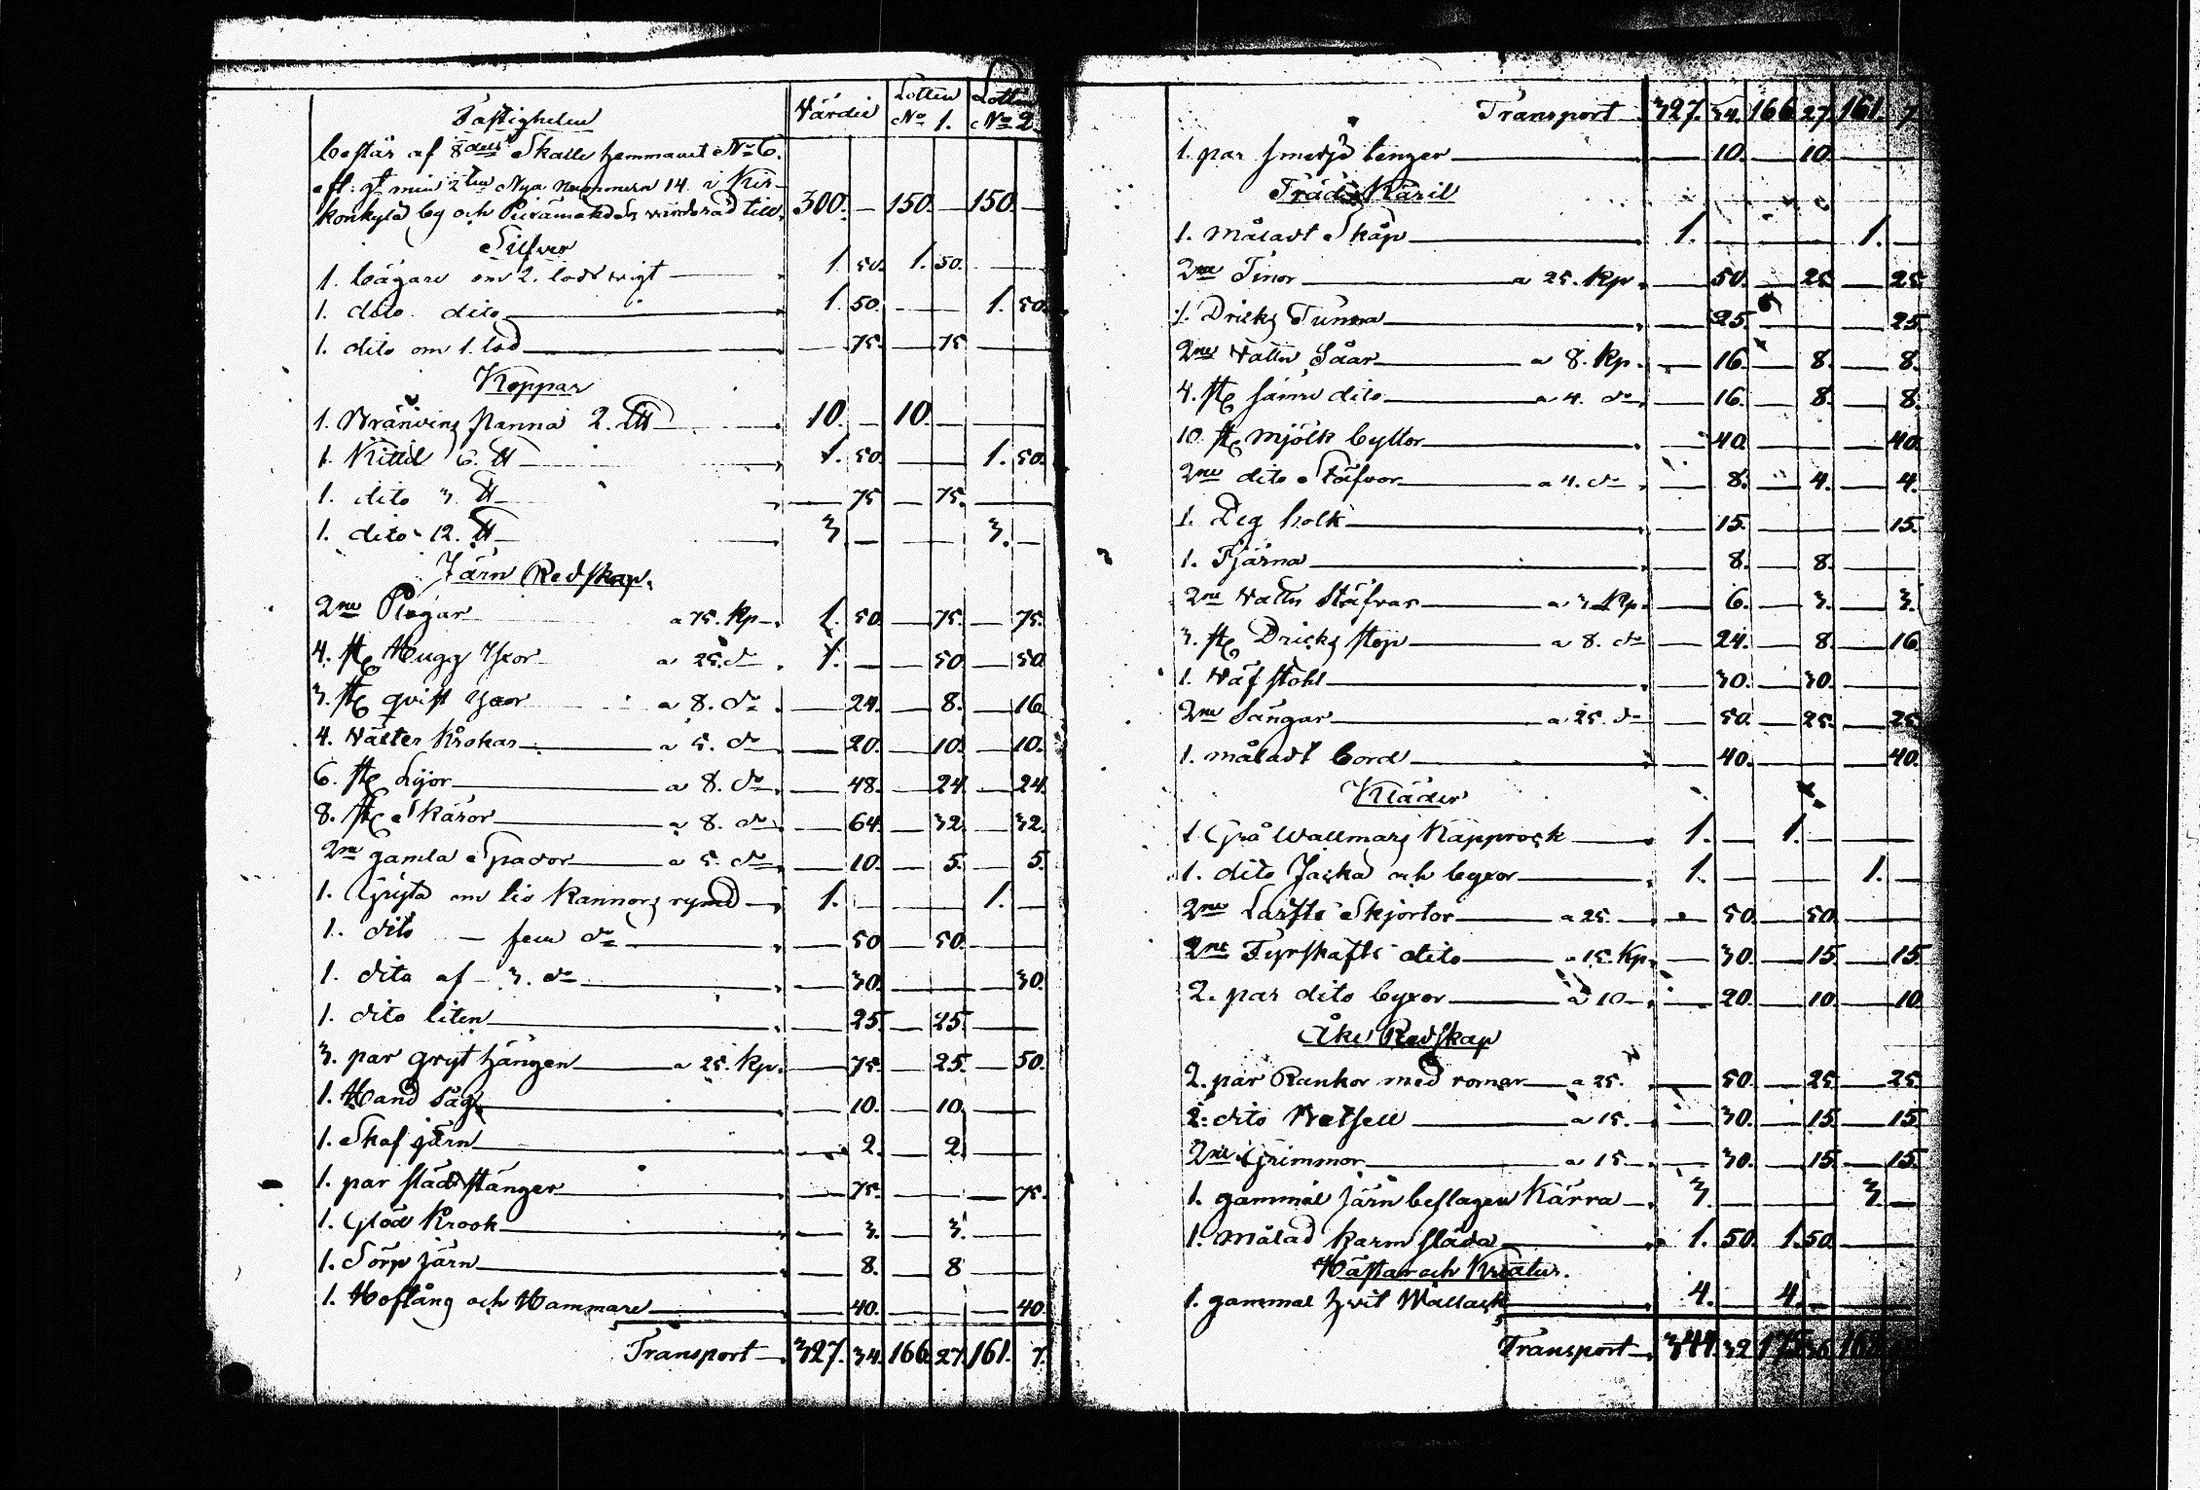 Fastigheten Värdie Lotten No 1. Lotten No 2.
består af 8dels Skatte hemmanet No 6.
nya Nummern 14 i Kir-
by och värderad till 300. — 150. — 150. —
Silfver
1. bägare om 2. lods vigt — 1. 50. 1. 50. —
1. dito dito — 1. 50. — 1. 50.
1. dito om 1. lod — 75. — 75 —
Koppar
1. Bränvins Panna 2. 10. — 10. —
1. Kittel 6. ℔ 1. 50. — 1. 50.
1. dito 3. ℔ — 75 — 75. —
1. dito 12. ℔ 3. — 3. —
Järn Redskap.
2ne Plogar a 75. Kp. 1. 50. — 75. — 75.
4. st Hugg Yxor a 25. do 1. — — 50. — 50
3. st qvist yxor a 8. do — 24. — 8. — 16
4. Välter Krokar a 5. do — 20. — 10. — 10.
6. st Lijor a 8. do — 48. — 24. — 24.
8. st Skäror a 8. do — 64. — 32. — 32.
2ne gamla Spador a 5. do — 10. — 5. — 5.
1. Gryta om tio Kannors rymd — 1. — 1. —
1. dito — fem do — 50 — 50. —
1. dito af 3. do — 30. — 30.
1. dito liten — 25. — 25. —
3. par gryt hängen a 25. Kp. — 75. — 25. — 50.
1. Hand såg — 10. — 10. —
1. Skaf järn — 2. — 2. —
1. par städ stänger — 75. — 75.
1. Glöd Krook — 3. — 3. —
1. Sörp järn — 8. — 8 —
1. Hoftång och Hammare — 40. — 40.
Transport 327. 34. 166. 27. 161. 7.
Transport 327. 34. 166. 27. 161. 7.
1. par smedje tenger — 10. — 10. —
Träd Käril
1. måladt Skåp — 1. — 1. —
2ne Tinor a 25. Kp. — 50. — 25 — 25
1. Dricks Tunna — 25. — 25.
2ne Vattu Såar a 8. Kp. — 16. — 8. — 8.
4. st sämre dito a 4. do — 16. — 8. — 8.
10. st mjölk byttor — 40. — 40.
2ne dito Stäfvor a 4. do — 8. — 4. — 4.
1. Deg holk — 15. — 15.
1. Tjärna — 8. — 8. —
2ne Vattu Stäfvar a 3 Kp. — 6. — 3. — 3.
3. st Dricks stop a 8. do — 24. — 8. — 16
1. Väf stohl — 30. — 30. —
2ne Sängar a 25. do — 50. — 25. — 25
1. måladt bord — 40. — 40.
Kläder
1 Grå Wallmars Kapprock — 1. — 1. —
1. dito Jacka och byxor — 1. — 1. —
2ne Lärfts Skjortor a 25 — 50. — 50. —
2ne Fyrskafts dito a 15. Kp. — 30. — 15. — 15
2. par dito byxor a 10 — 20. — 10. — 10.
Åke Redskap
2. par Rankor med romar a 25. — 50. — 25. — 25
2. dito Betsell a 15. — 30. — 15. — 15
2ne Grimmor a 15 — 30. — 15. — 15
1. gammal järn beslagen Kärra — 3. — 3. —
1. målad karm släda — 1. 50. 1. 50. —
Hästar och Kreatur.
1. gammal hvit Wallack — 4. — 4. —
Transport 344. 32